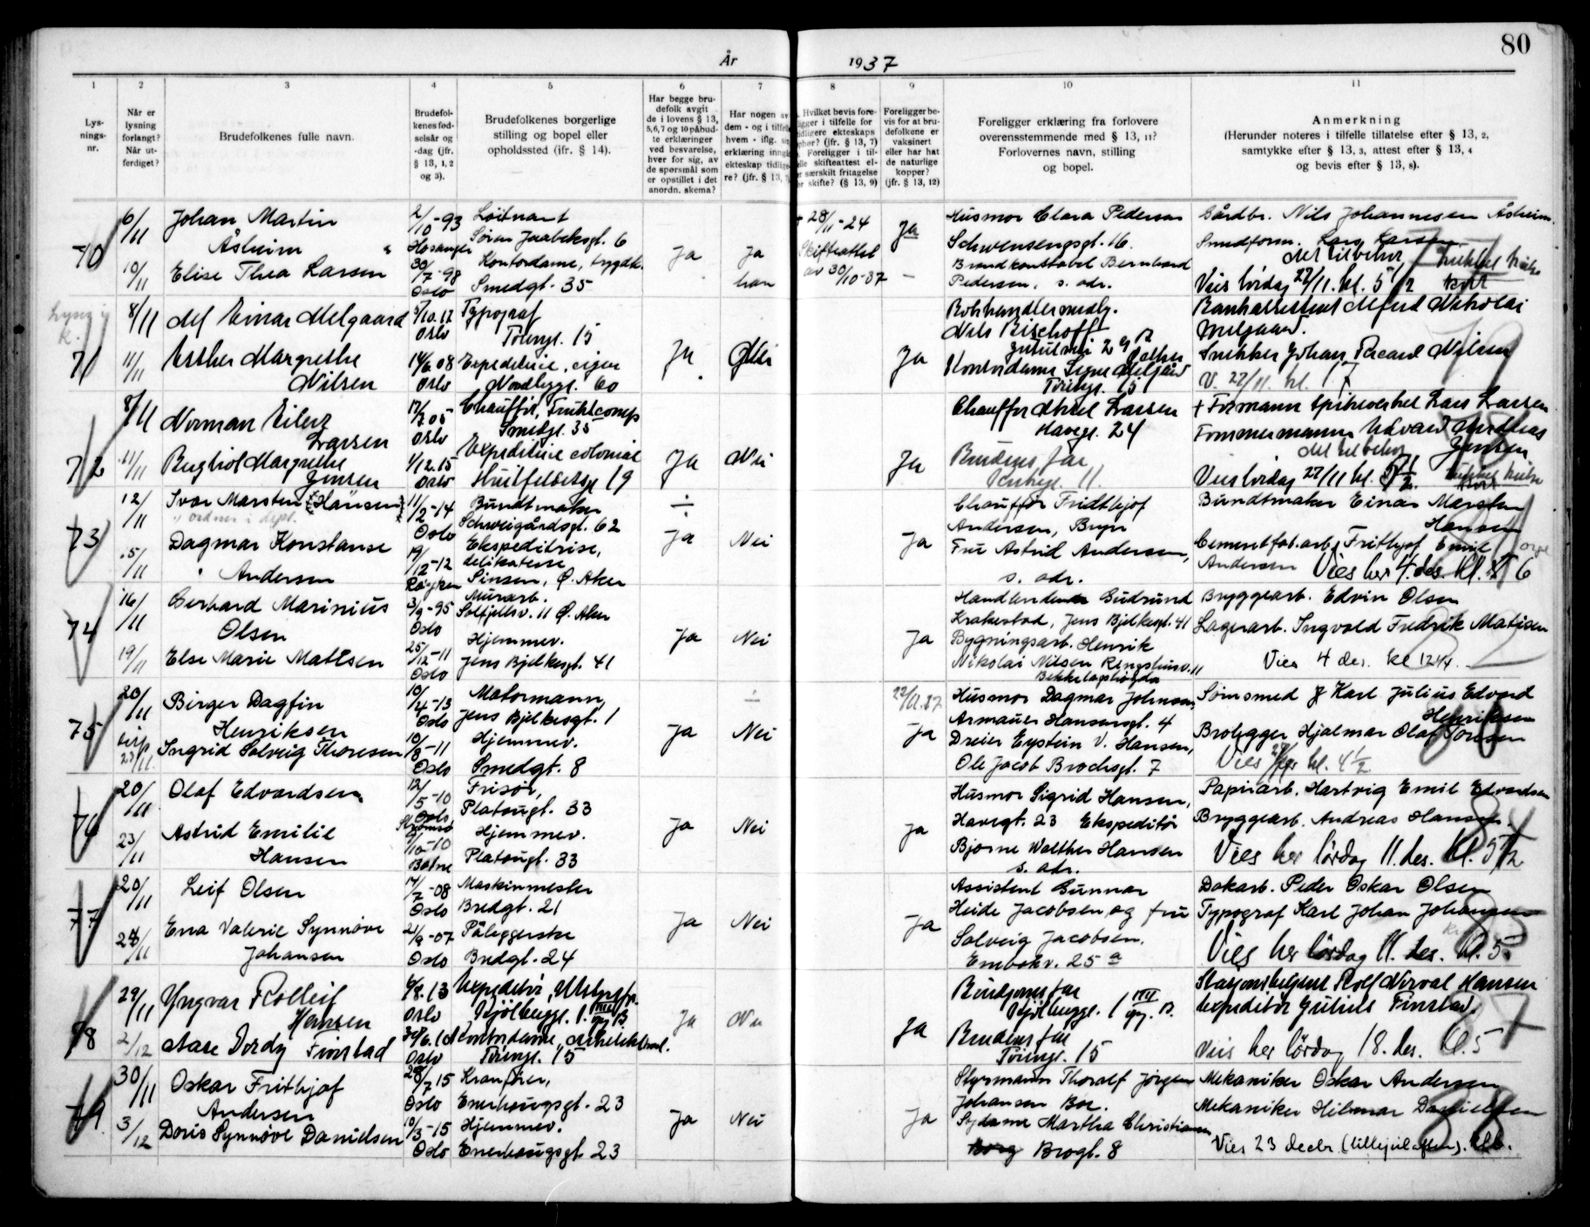 80
År 1937
1 2 3 4 5 6 7 8 9 10 11
Lys-
nings-
nr.
Når er
lysning
forlangt?
Når ut-
ferdiget?
Brudefolkenes fulle navn.
Brudefol-
kenes fød-
selsår og
-dag (jfr.
§ 13, 1, 2
og 3).
Brudefolkenes borgerlige
stilling og bopel eller
opholdssted (ifr. § 14).
Har begge bru-
defolk avgitt
de i lovens § 13,
5,6,7 og 10 påbud-
te erklæringer
ved besvarelse,
hver for sig, av
de spørsmål som
er opstillet i det
anordn. skema?
Har nogen av
dem - og i tilfelle
hvem - iflg.
erklæring inngått
ekteskap tidlige-
re? (jfr. § 13,
Hvilket bevis fore-
ligger i tilfelle for
tidligere ekteskaps
ophør? (jfr. § 13, 7)
Foreligger i til-
felle skifteattest el-
ler særskilt fritagelse
for skifte? (§ 13, 9)
Foreligger be-
vis for at bru-
defolkene er
vaksinert
eller har hat
de naturlige
kopper?
(jfr. § 13, 12)
Foreligger erklæring fra forlovere
overensstemmende med § 13, 11?
Forlovernes navn, stilling
og bopel.
Anmerkning
(Herunder noteres i tilfelle tillatelse efter § 13, 2,
samtykke efter § 13, 3, attest efter § 13, 4
og bevis efter § 13, 8).
70
6/11 Johan Martin
Åsheim
10/11 Elise Thea Larsen
2/10-93
Hosanger
30/7-98
Oslo
Løitnant
Søren Jaabeksgt. 6
Kontordame, trygdk.
Smedgt. 35
Ja
Ja
han
+ 28/11-24
Skifteattest
av 30/10-37
Ja
—
Husmor Clara Pedersen
Schwensengt. 16.
Brandkonstabel Bernhard
Pedersen, s. adr.
Gårdbr. Nils Johannesen Åsheim.
Smedform. Lars Larsen
det tilbehør
Vies lørdag 27/11. kl. 5 1/2
77
71
8/11 Alf Einar Melgaard
11/11 Esther Margrethe
Nilsen
Oslo
14/6 08
Oslo
Typograf
Tøiengt. 15
Expeditrise, cigar
Nordbygt. 60
Ja
Nei
Ja
Bokhandlermedhj.
Nils Bischoff
Kontordame Signe Melgård
Tøiengt. 15
Bankassistent Alfred Nikolai
Melgaard.
Snekker Johan Ricard Nilsen
V. 27/11. kl. 17
79
72
8/11 Norman Eilert
Larsen
11/11 Bughild Margrethe
Jensen
17/7 05
Oslo
1/12.15
Oslo
Chauffør, Fruktcomp
Smedgt. 35
Expeditrise colonial
Huitfeldtsgt 19
Ja
Nei
Ja
Chauffør Aksel Larsen
Havegt. 24
Brudens far
+ Formann Spikerverket Lars Larsen
Tømmermann Edvard Andreas
Jensen
det tilbehør
Vies lørdag 27/11 kl.
78
73
12/11 Ivar Marsten (Hansen)
15/11 Dagmar Konstanse
Andersen
11/2-14
Oslo
19/12-12
Røyken
Bundtmaker
Schweigårdsgt. 62
Ekspeditrise,
delikatesse
Sinsen, Ø. Aker
÷
Ja
Nei
Ja
Chauffør Fridthjof
Andersen, Bryn
Fru Astrid Andersen,
s. adr.
Bundtmaker Einar Marsten
Hansen
Cementfab.arb. Frithjof Emil
Andersen Vies her 4. des. kl. 6
74
16/11 Gerhard Marinius
Olsen
19/11 Else Marie Mattsen
3/9-95
Oslo
25/12-11
Oslo
Murarb.
Solfjellsv. 11 Ø. Aker
Hjemmev.
Jens Bjelkesgt. 41
Ja
Nei
Ja
Handlende Gudrund
Krakestad, Jens Bjelkesgt. 41
Bygningsarb. Henrik
Nikolai Nilsen Ringshusv. 11
Bekkelagshøgda
Bryggearb. Edvin Olsen
Lagerarb. Ingvald Fredrik Matisen
Vies 4 des. kl 12 1/4.
82
75
20/11 Birger Dagfin
Henriksen
23/11 Ingrid Solveig Thoresen
10/4-13
Oslo
10/8-11
Oslo
Motormann,
Jens Bjelkesgt. 1
Hjemmev.
Smedgt. 8
÷
Ja
Nei
22/11.37
Ja
Husmor Dagmar Johnsen
Armauer Hansensgt. 4
Dreier Eystein V. Hansen,
Ole Jacob Brochsgt. 7
Sømsmed Karl Julius Edvard
Henriksen
Brolegger Hjalmar Olaf Toresen
Vies kl. 4 1/2
80
76
20/11 Olaf Edvardsen
23/11 Astrid Emilie
Hansen
12/5-10
Oslo
9/10-10
Botne
Frisør,
Platougt. 33
Hjemmev.
Platougt. 33
Ja
Nei
Ja
Husmor Sigrid Hansen,
Havegt. 23 Ekspeditør
Bjarne Walther Hansen
s. adr.
Papirarb. Hartvig Emil Edvardsen
Bryggearb. Andreas Hansen.
Vies her lørdag 11. des. kl. 5 1/2
84
77
20/11 Leif Olsen
24/11 Ena Valerie Synnøve
Johansen
14/7-08
Oslo
21/9-07
Oslo
Maskinmester
Bredgt. 21
Påleggerske
Bredgt. 24
Ja
Nei
Ja
Assistent Gunnar
Heide Jacobsen og fru
Solveig Jacobsen.
Enebakv. 25 a
Dokarb. Peder Oskar Olsen
Typograf Karl Johan Johansen
Vies her lørdag 11. des. kl. 5.
85
78
29/11 Yngvar Rolleif
Hansen
2/12 Aase Dordy Finstad
Oslo
Oslo
Tøiengt. 15
Ja
Nei
Ja
Brudgommens far
Brudens far
Tøiengt. 15
Stasjonsbetjent Rolf Norval Hansen
Expeditør Gulik Finstad
Vies her lørdag 18. des. kl. 5
87
79
30/11 Oskar Frithjof
Andersen
3/12 Doris Synnøve Danielsen
28/7 15
Oslo
10/3-15
Oslo
Kranfører,
Enerhaugsgt. 23
Hjemmev.
Enerhaugsgt. 23
Ja
Nei
Ja
Styrmann Thoralf Jørgen
Johansen Boe.
Sydame Martha Christiansen
Brogt. 8
Mekaniker Oskar Andersen
Mekaniker Hilmar Danielsen
Vies 23 decbr. (lillejulaften). kl 6.
88